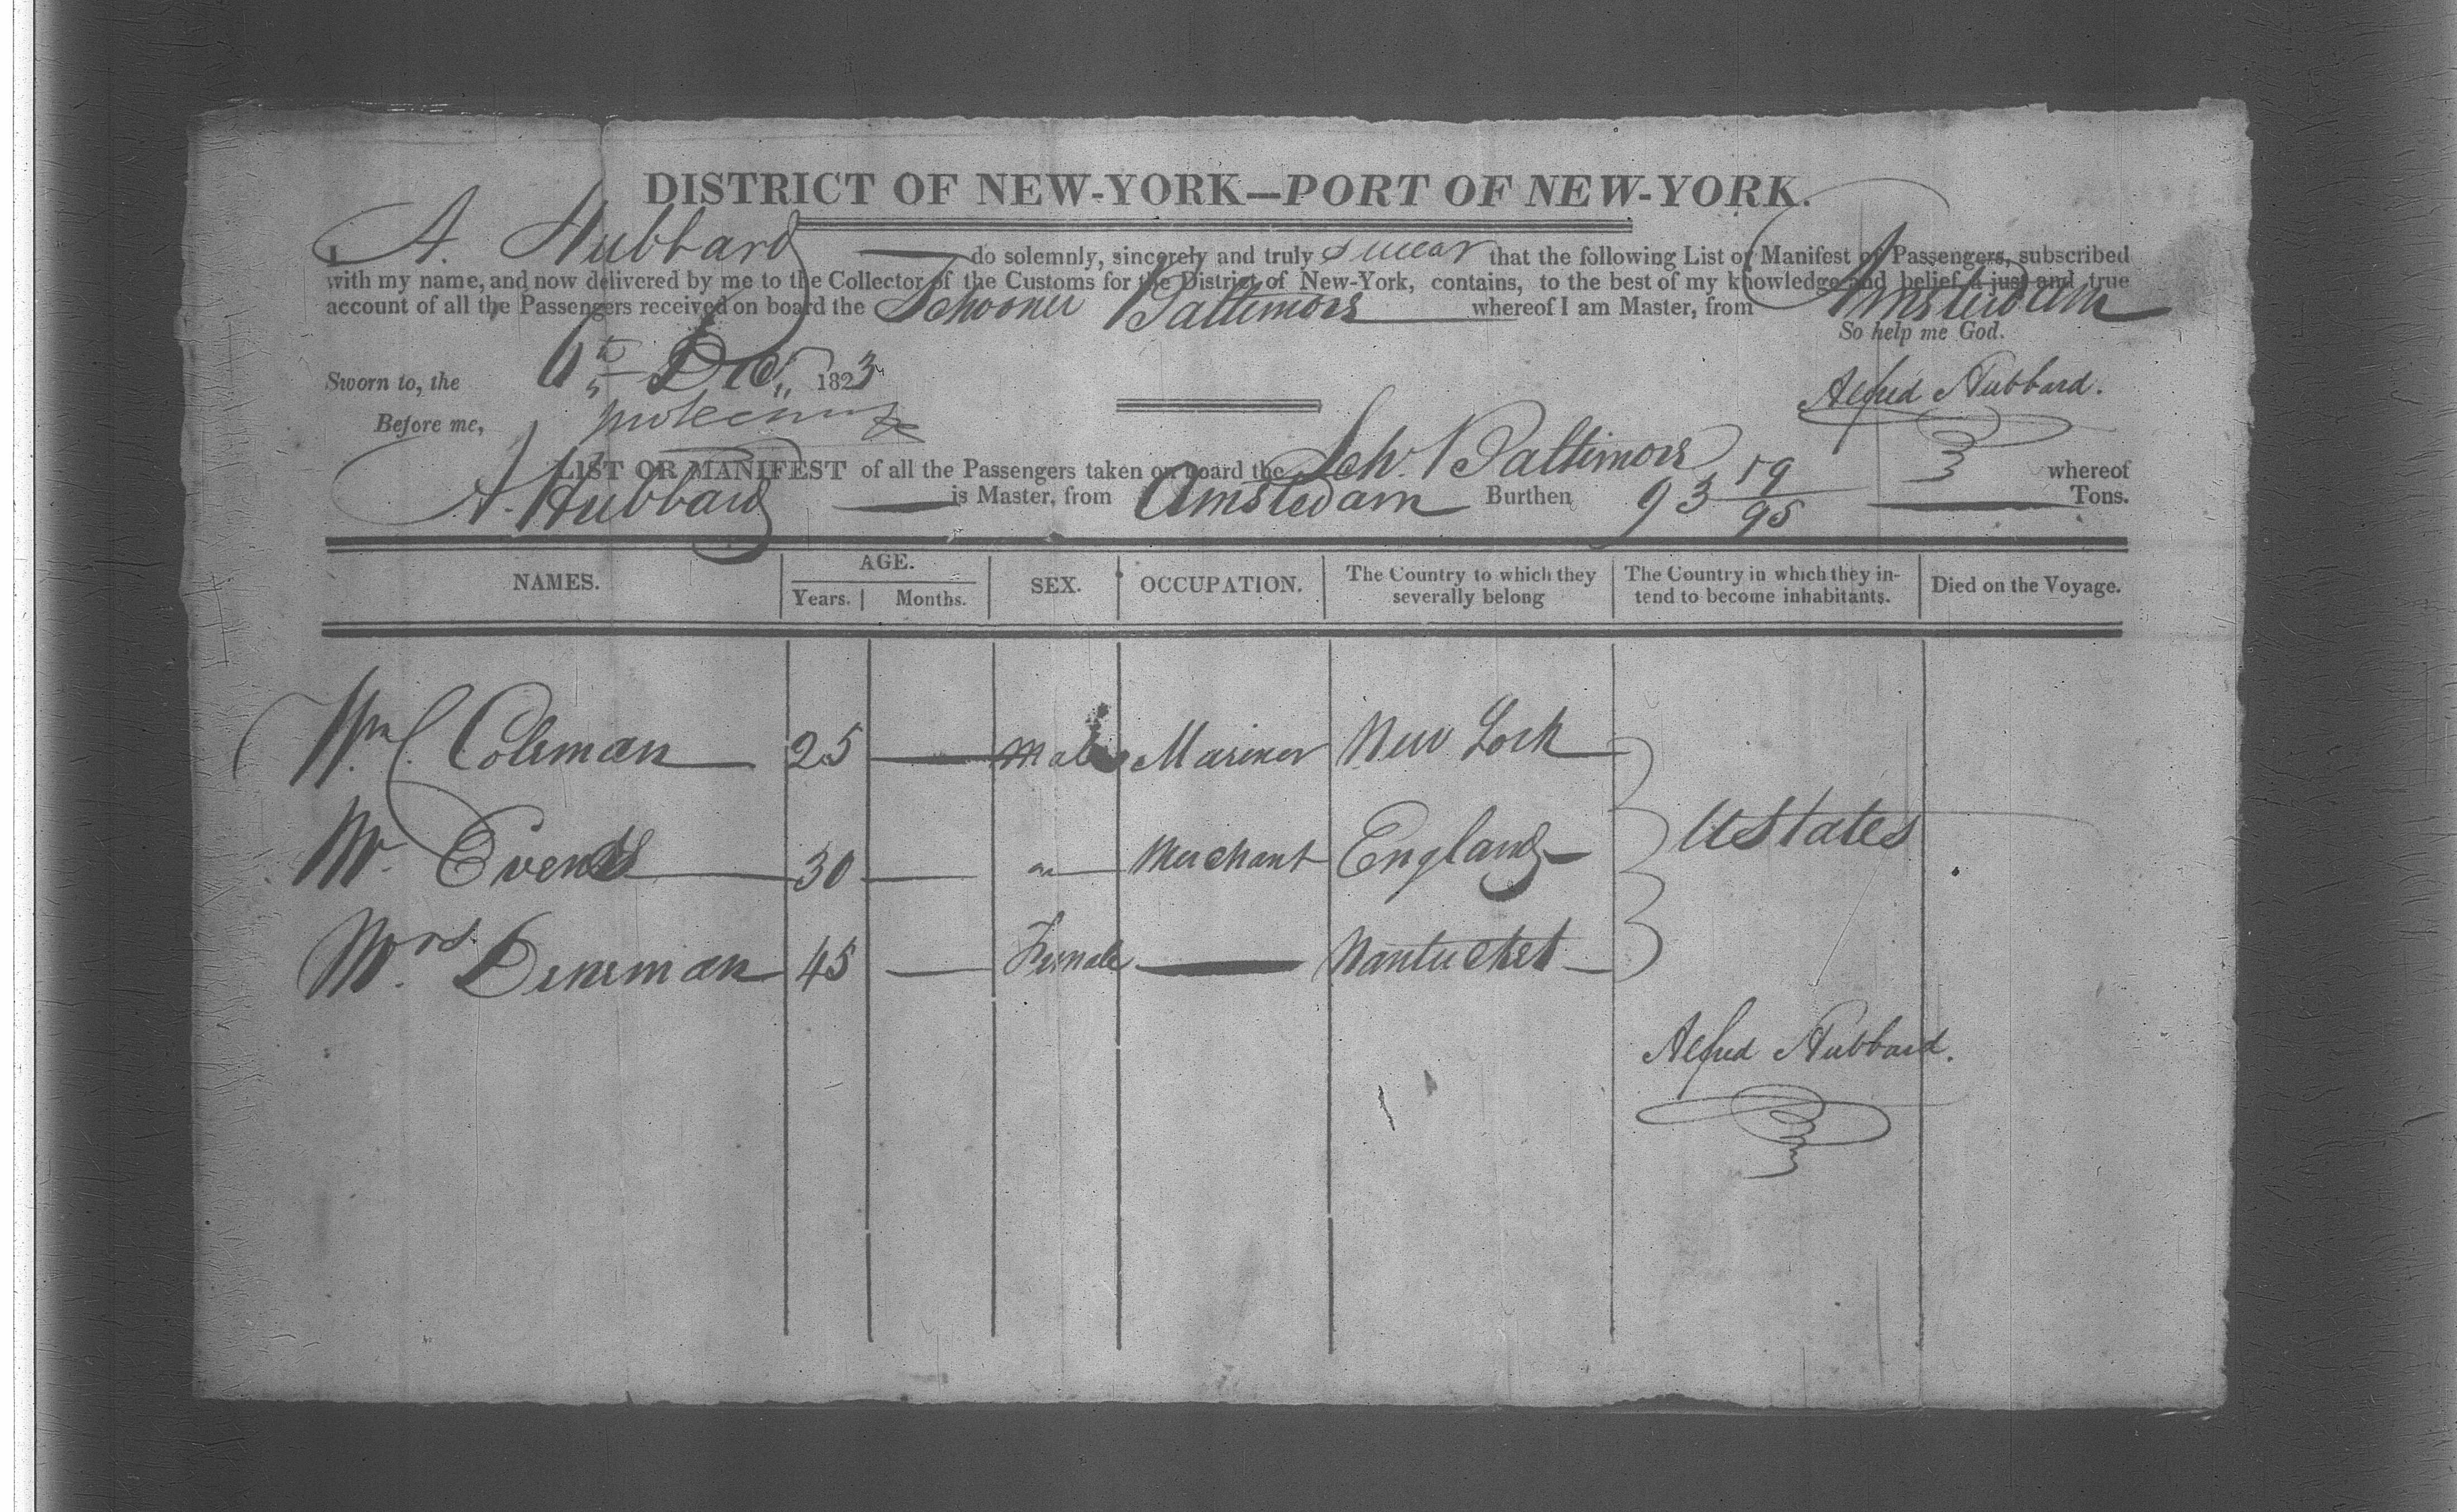 DISTRICT OF NEW-YORK—PORT OF NEW-YORK.
I, A. Hubbard do solemnly, sincerely and truly swear that the following List or Manifest of Passengers, subscribed
with my name, and now delivered by me to the Collector of the Customs for the District of New-York, contains, to the best of my knowledge and belief, a just and true
account of all the Passengers received on board the Schooner Baltimore whereof I am Master, from Amsterdam
So help me God.
Sworn to, the 6th Dec. 1823
Alfred Hubbard.
Before me,
LIST OR MANIFEST of all the Passengers taken on board the Sch. Baltimore whereof
A. Hubbard is Master, from Amstedam Burthen 93 19/95 Tons.
NAMES. AGE. SEX. OCCUPATION. The Country to which they severally belong The Country in which they intend to become inhabitants. Died on the Voyage.
Years. Months.
Wm C. Coleman 25 — Male Mariner New York
Mr. Evens 30 — Merchant England UStates
Mrs. 45 — Female — Nantucket
Alfred Hubbard.